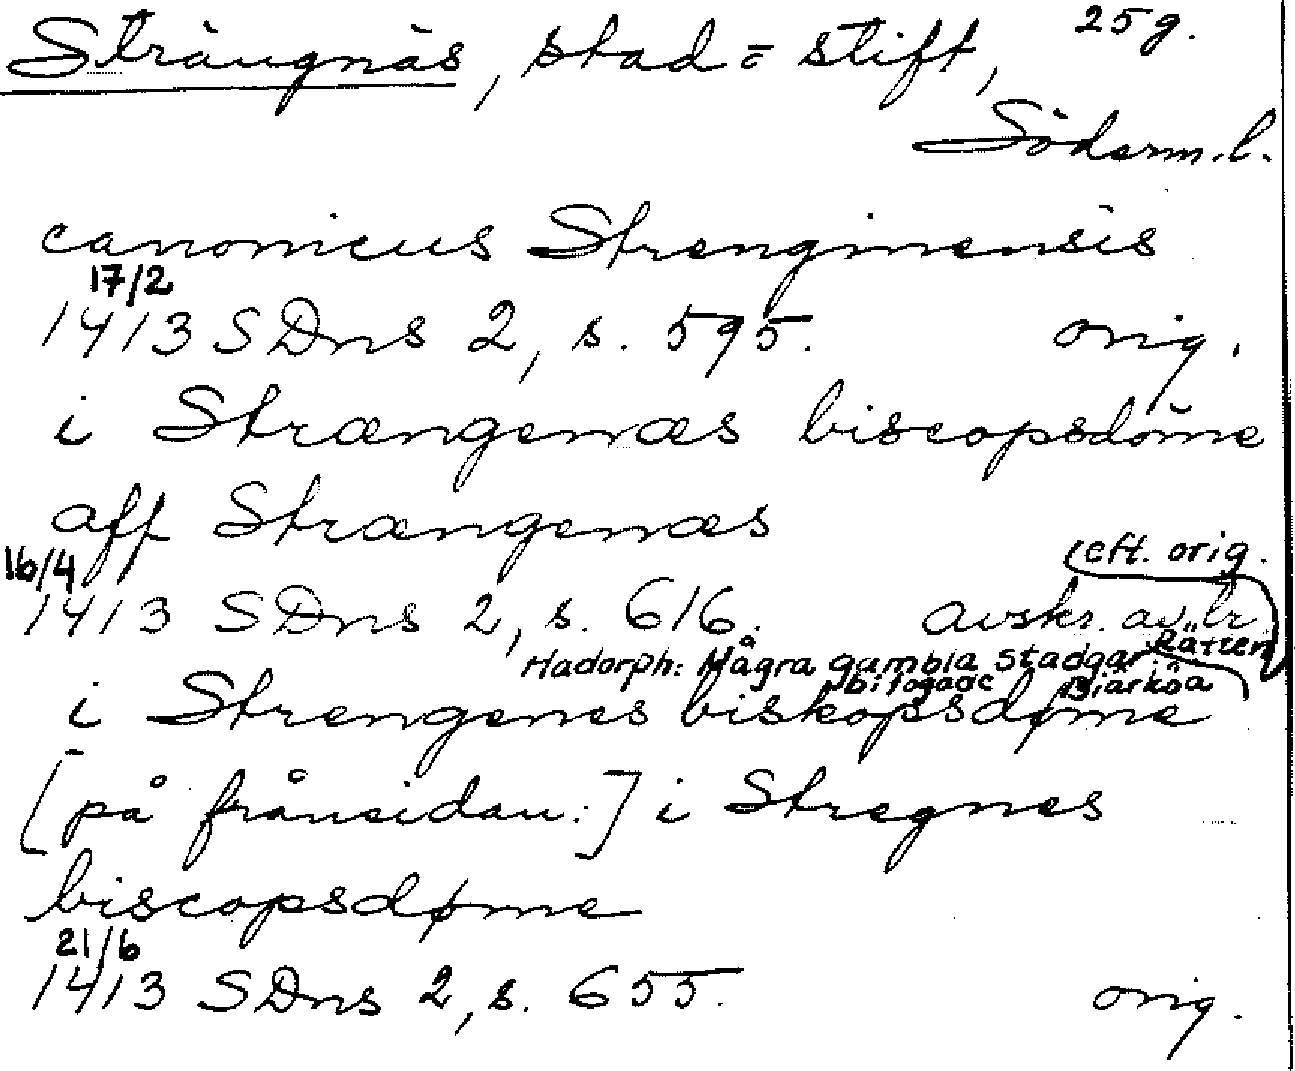 Strängnäs, stad = stift, 25g.
Söderm.l.
canonicus Strenginensis
17/2
1413 SDns 2, s. 595. orig.
i Strængenæs biscopsdöme
aff Strængenæs
16/4 (eft. orig.
1413 SDns 2, s. 616. avskr. av
Hadorph: Några gambla stadgar
bifogade Biärköa Rätten
i Strengenes biskopsdøme
[på frånsidan:] i Stregnes
biscopsdøme
21/6
1413 SDns 2, s. 655. orig.